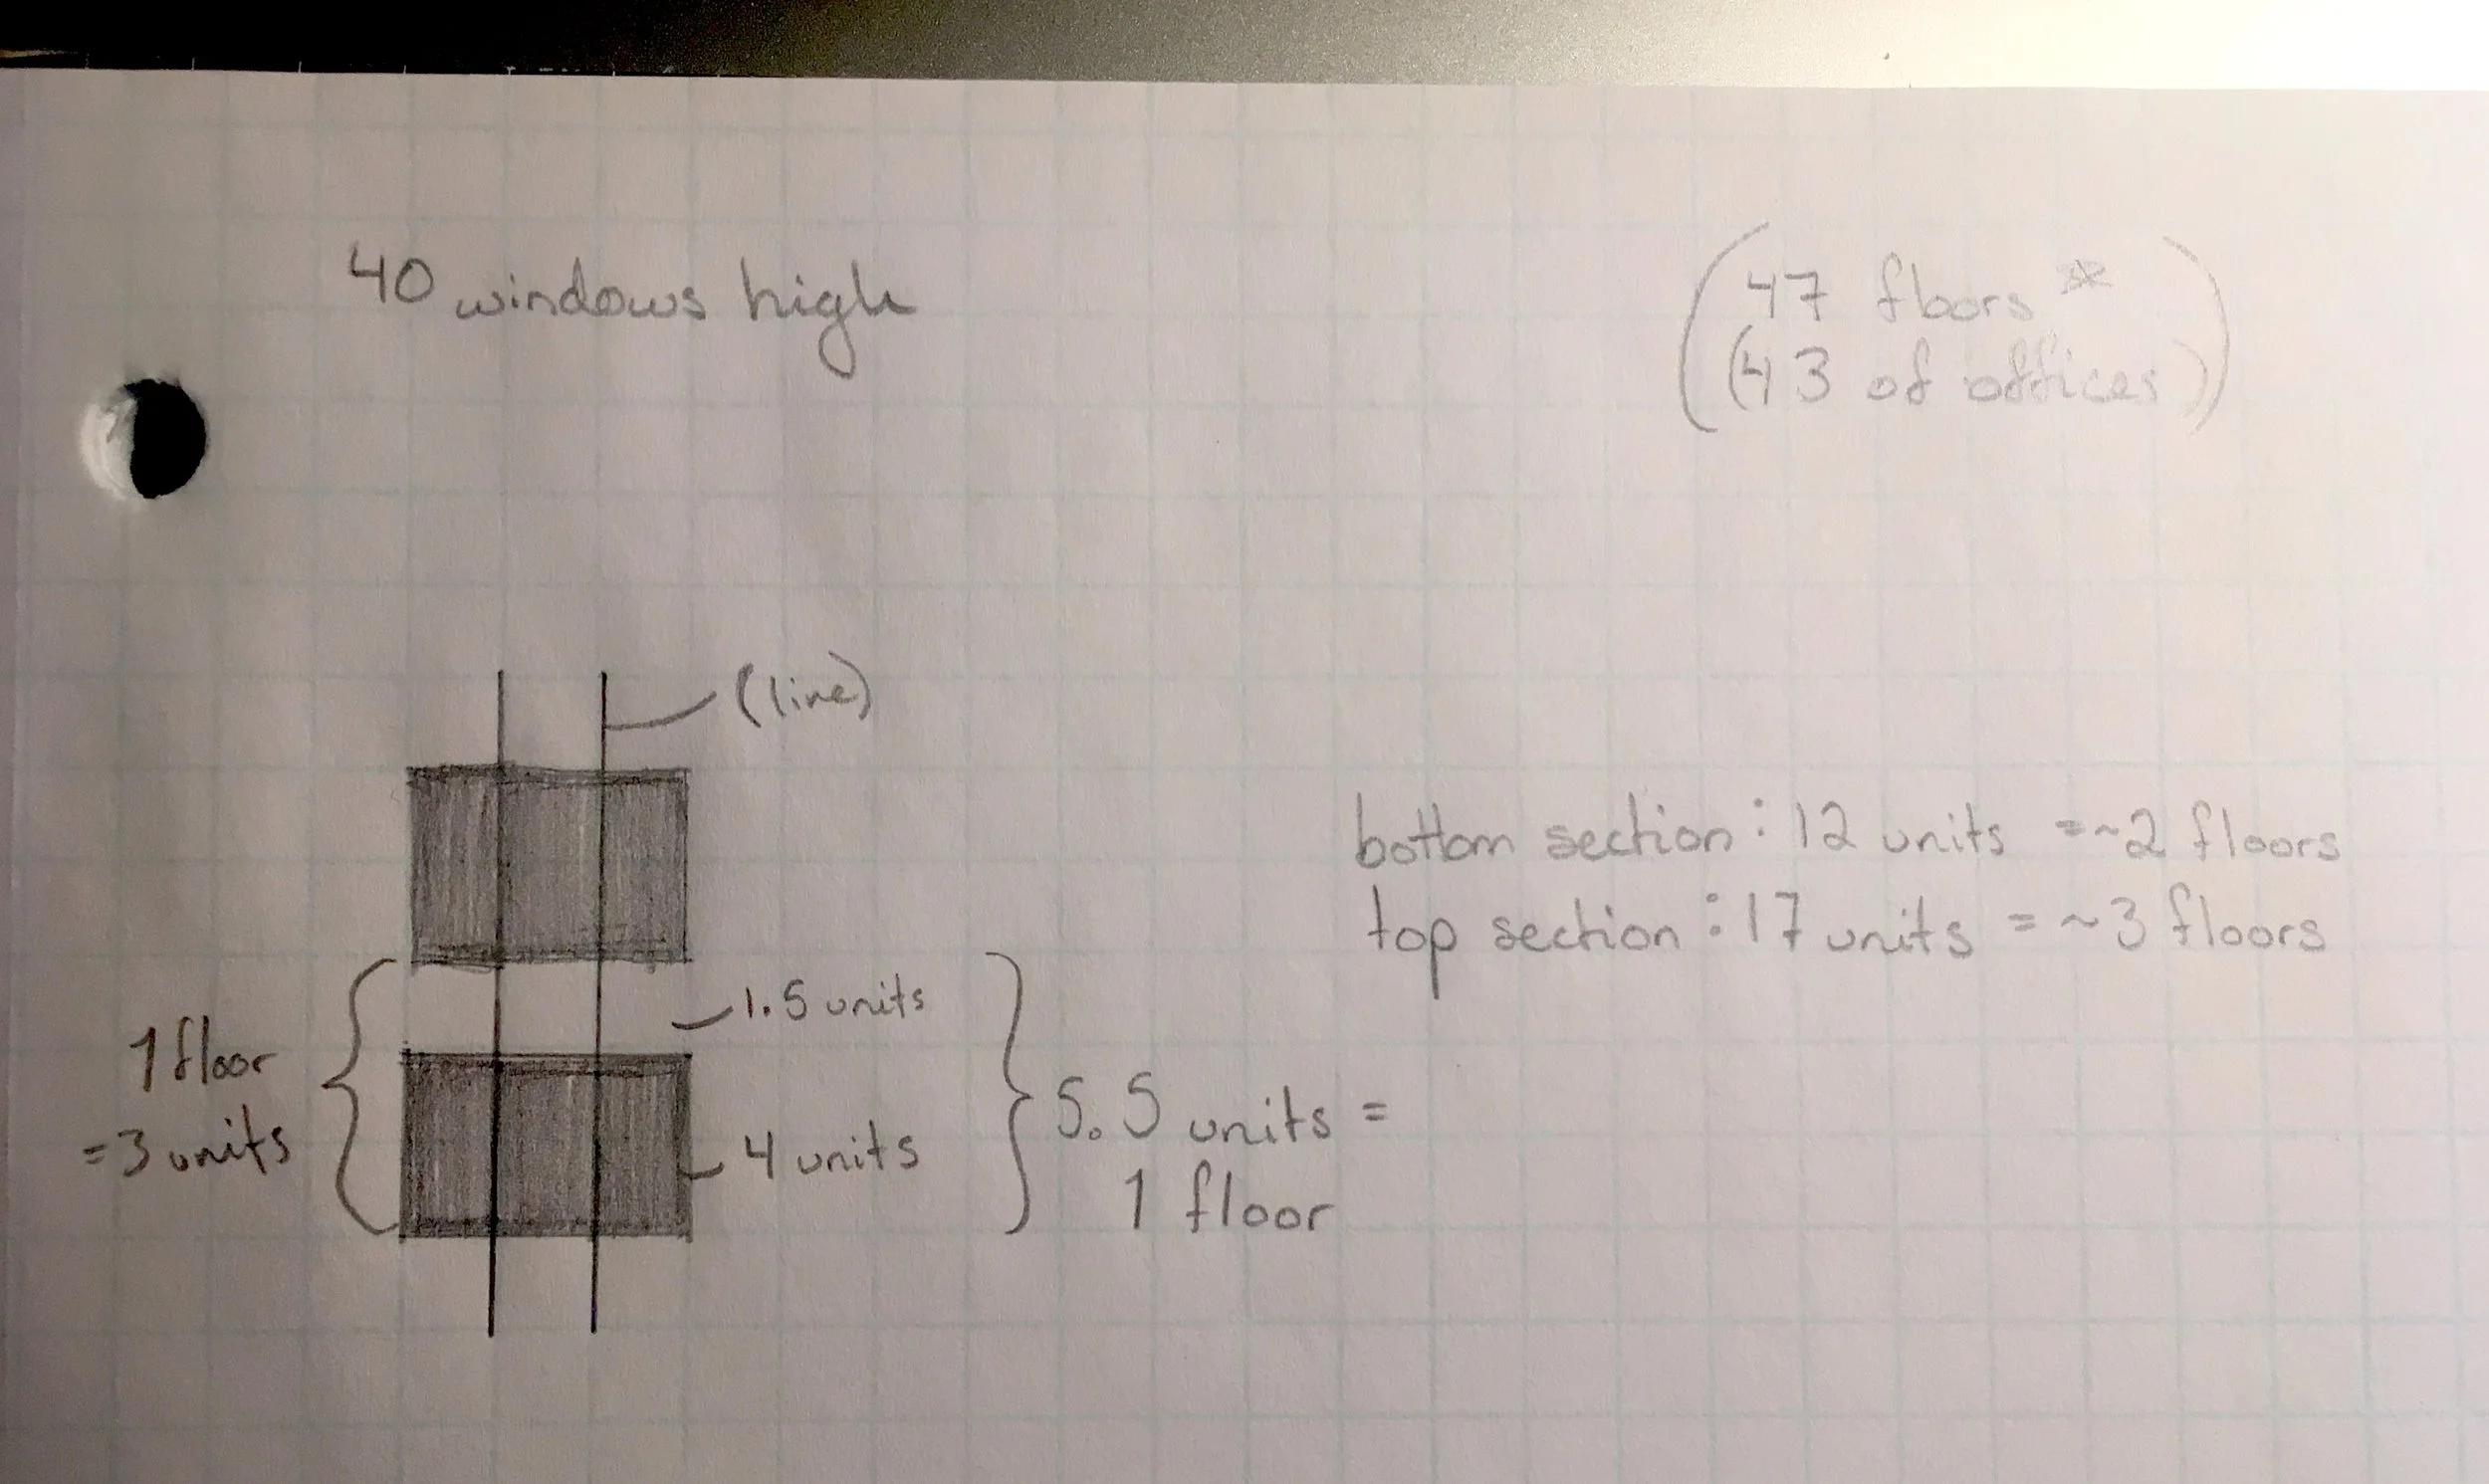 40 windows high
(47 floors *
(43 of offices))
(line)
bottom section : 12 units = ~2 floors
top section : 17 units = ~3 floors
1.5 units
1 floor
= 3 units
4 units
5.5 units =
1 floor